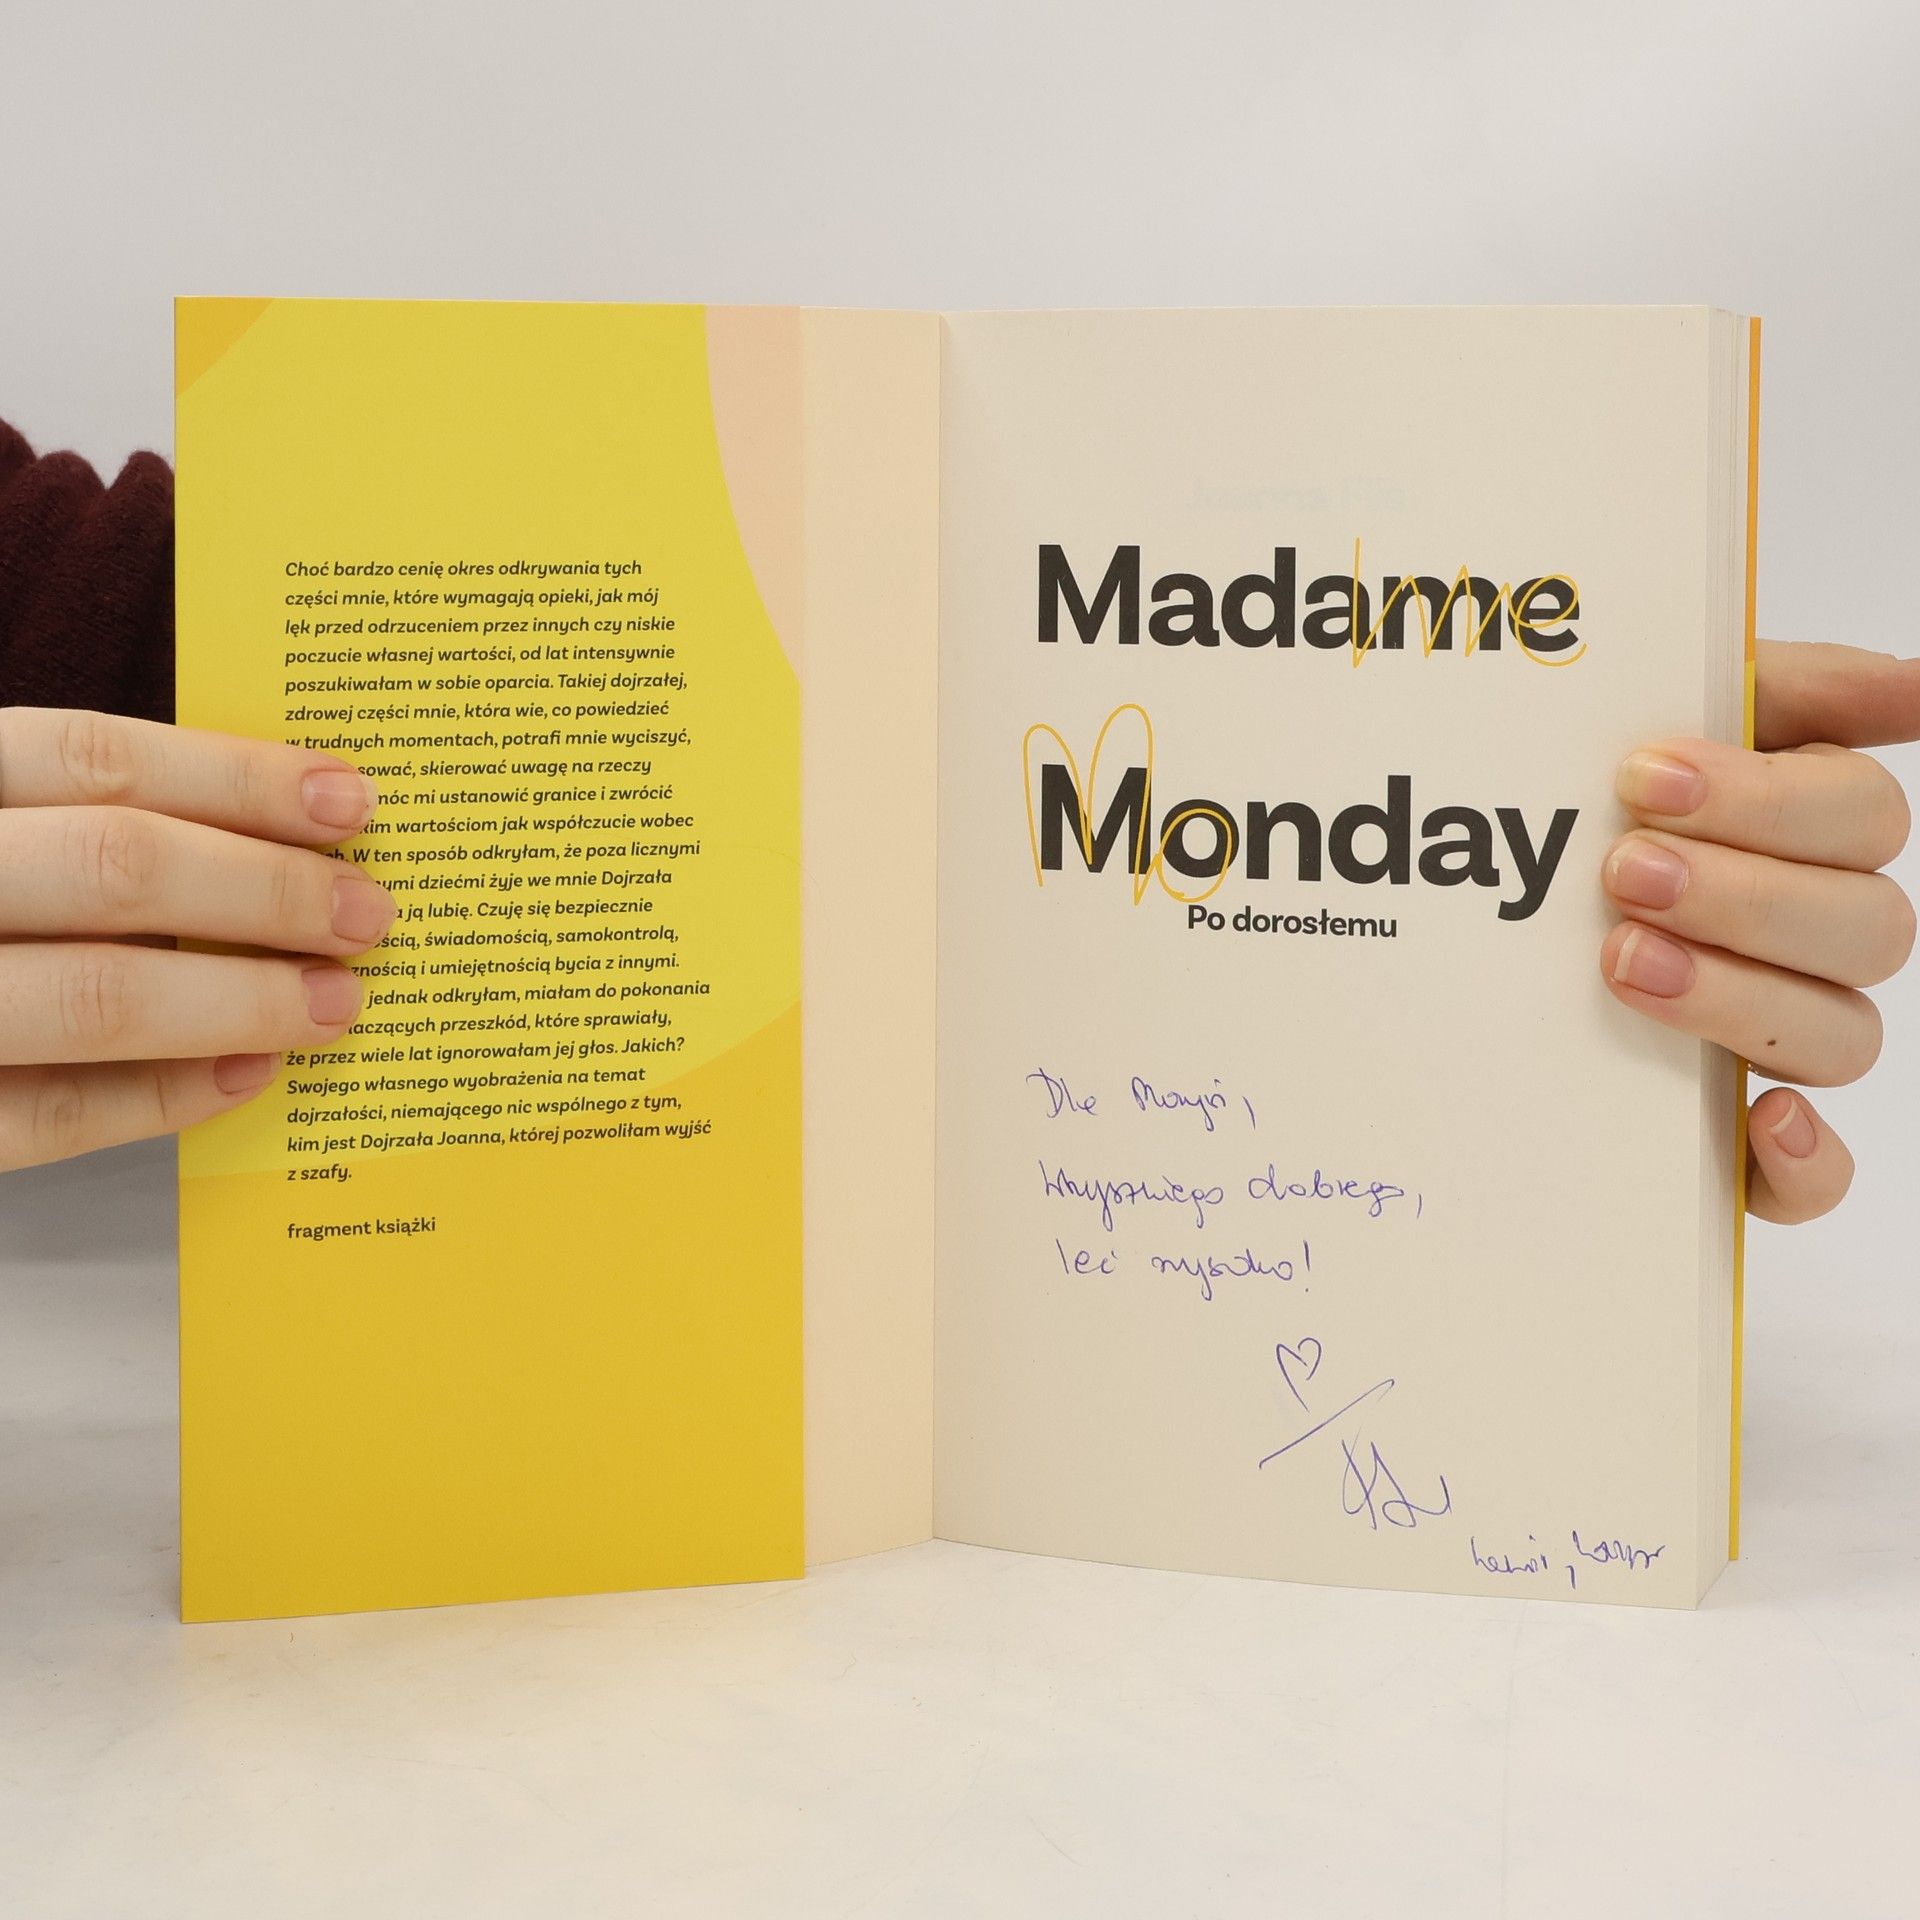 Choć bardzo cenię okres odkrywania tych
części mnie, które wymagają opieki, jak mój
lęk przed odrzuceniem przez innych czy niskie
poczucie własnej wartości, od lat intensywnie
poszukiwałam w sobie oparcia. Takiej dojrzałej,
zdrowej części mnie, która wie, co powiedzieć
w trudnych momentach, potrafi mnie wyciszyć,
sować, skierować uwagę na rzeczy
móc mi ustanowić granice i zwrócić
kim wartościom jak współczucie wobec
ch. W ten sposób odkryłam, że poza licznymi
nymi dziećmi żyje we mnie Dojrzała
a ją lubię. Czuję się bezpiecznie
ścią, świadomością, samokontrolą,
znością i umiejętnością bycia z innymi.
jednak odkryłam, miałam do pokonania
aczących przeszkód, które sprawiały,
że przez wiele lat ignorowałam jej głos. Jakich?
Swojego własnego wyobrażenia na temat
dojrzałości, niemającego nic wspólnego z tym,
kim jest Dojrzała Joanna, której pozwoliłam wyjść
z szafy.
fragment książki
Madame
Monday
Po dorosłemu
Dla Marysi,
Wszystkiego dobrego,
leć wysoko!